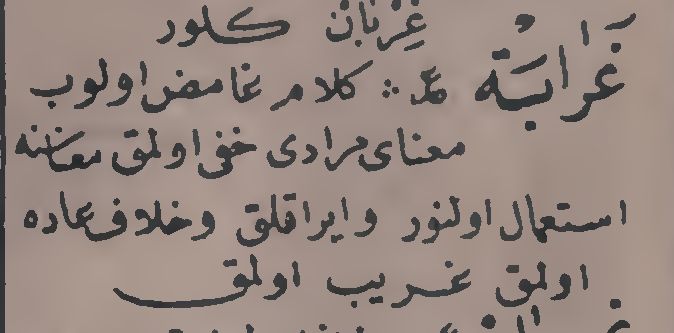 غِرْبَانْ كلور
غَرَابَتْه كلام غامض اولوب
معناى مرادى خفى اولمق معناسنه
استعمال اولنور وايراقلق وخلاف عاده
اولمق غريب اولمق